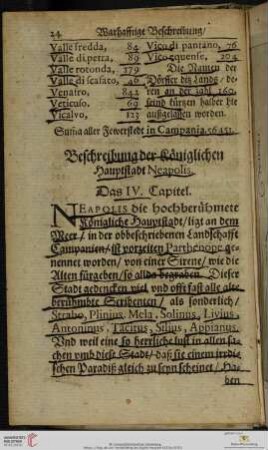 24 Warhafftige Beschreibung/
Valle fredda, 84
Valle di petra, 89
Valle rotonda, 179
Valle di scafato, 46
Venafro, 842
Veticuso, 69
Vicalvo, 123
Vico di pantano, 76
Vico equense, 204
Die Namen der
Dörffer des Lands/ de-
ren an der zahl 160.
seind kürtzen halber hie
außgelassen worden.
Suma aller Fewerstedt in Campania
Beschreibung der Königlichen
Hauptstadt Neapolis.
Das IV. Capitel.
NEAPOLIS die hochberühmete
Königliche Hauptstadt/ ligt an dem
Meer/ in der obbeschriebenen Landschafft
Campanien/ ist vorzeiten Parthenope ge-
nennet worden/ von einer Sirene/ wie die
Alten fürgeben/ so allda begraben. Dieser
Stadt gedencken viel vnd offt fast alle alte
berühmbte Scribenten/ als sonderlich/
Strabo, Plinius, Mela, Solinus, Livius,
Antoninus, Tacitus, Silius, Appianus.
Vnd weil eine so herrliche lust in allen sa-
chen vmb diese Stadt/ daß sie einem irrdi-
schen Paradiß gleich zu seyn scheinet/ Ha-
ben